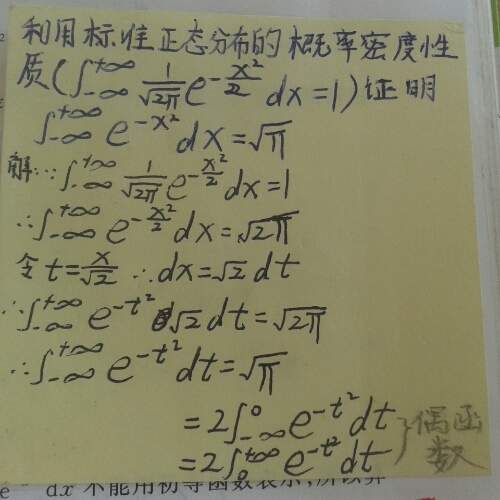 利用标准正态分布的概率密度性
质(∫_{-∞}^{+∞} 1/√2π e^{-x²/2} dx=1)证明
∫_{-∞}^{+∞} e^{-x²} dx=√π
解∵∫_{-∞}^{+∞} 1/√2π e^{-x²/2} dx=1
∴∫_{-∞}^{+∞} e^{-x²/2} dx=√2π
令t=x/√2 ∴dx=√2 dt
∴∫_{-∞}^{+∞} e^{-t²} √2 dt=√2π
∴∫_{-∞}^{+∞} e^{-t²} dt=√π
=2∫_{-∞}^{0} e^{-t²} dt
=2∫_{0}^{+∞} e^{-t²} dt
}偶函
数
e dx 不能用初等函数表示,所以算